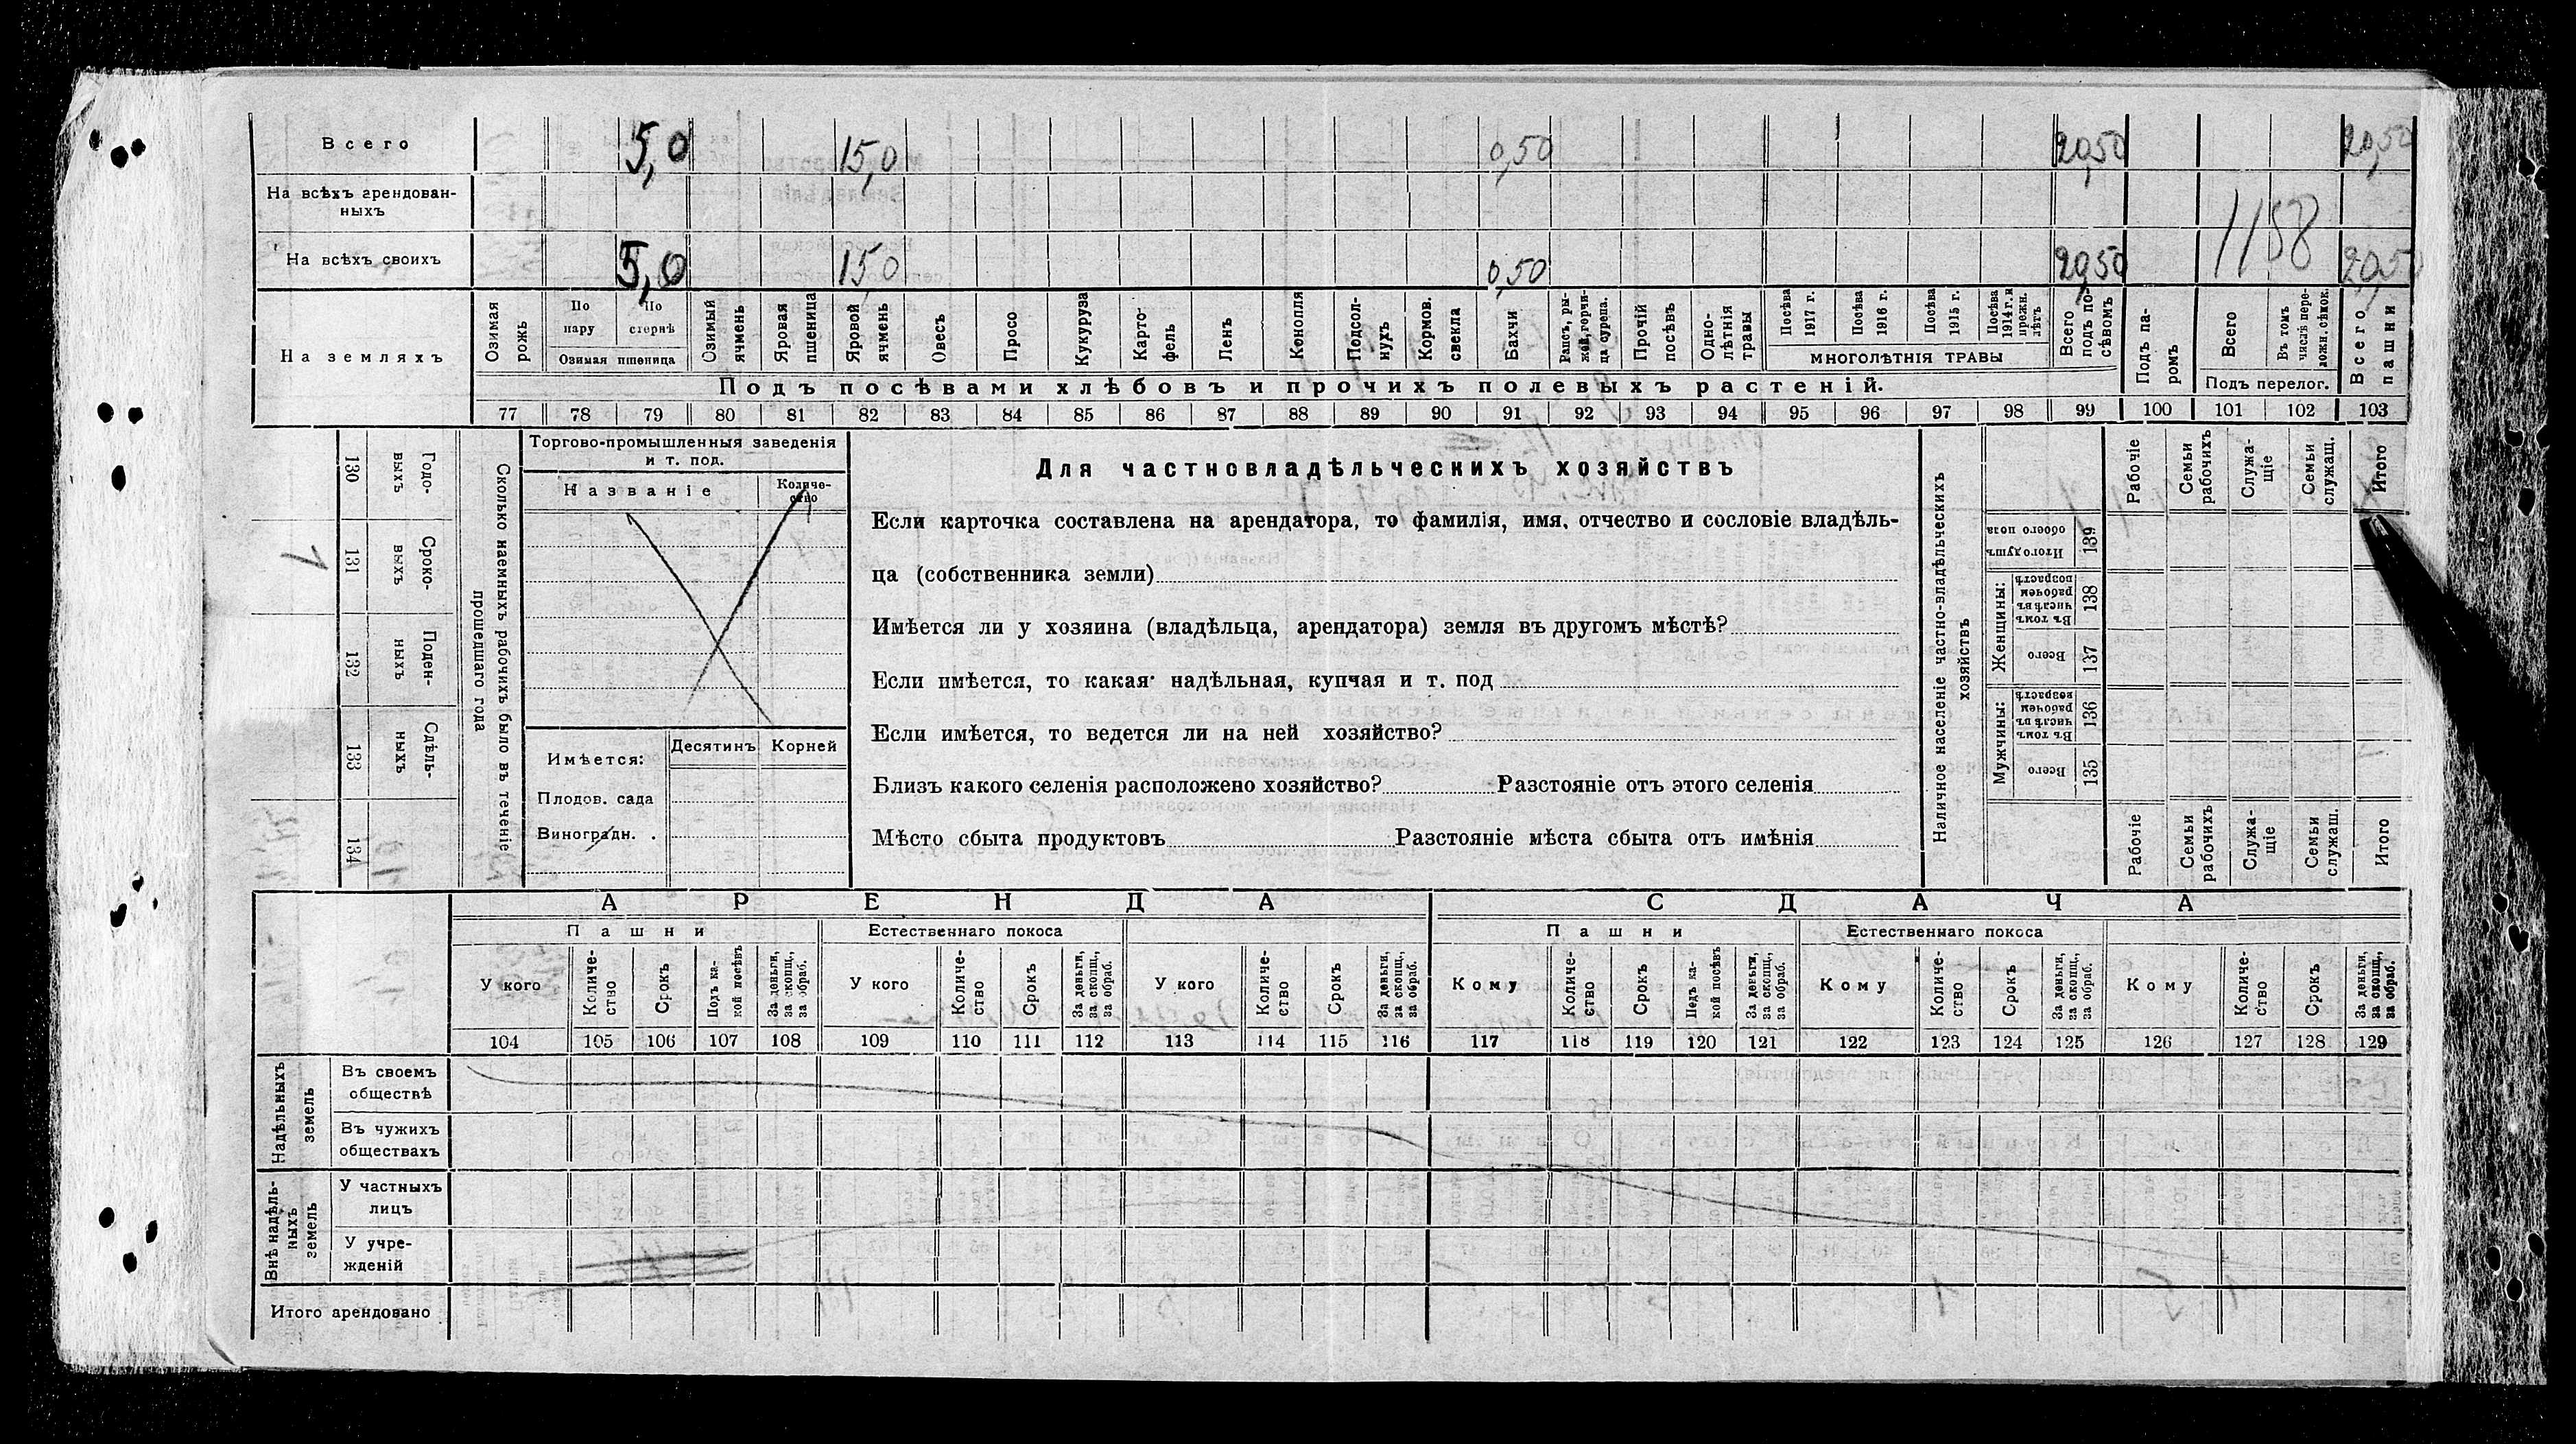 Всего 5,0 15,0 0,50 20,50 20,50
На всѣхъ арендован-
ныхъ
1158
На всѣхъ своихъ 5,0 15,0 0,50 20,50 20,5
На земляхъ
Озимая рожь
По пару
По стернѣ
Озимая пшеница
Озимый ячмень
Яровая пшеница
Яровой ячмень
Овесъ
Просо
Кукуруза
Карто-
фель
Ленъ
Конопля
Подсол-
нухъ
Кормов. свекла
Бахчи
Рапсъ, ры-
жей, горчи-
ца сурепа.
Прочій посѣвъ
Одно-
лѣтнія
травы
Посѣва 1917 г.
Посѣва 1916 г.
Посѣва 1915 г.
Посѣва 1914 г. и прежн. лѣтъ
МНОГОЛѢТНІЯ ТРАВЫ
Всего подъ по-
сѣвомъ
Подъ па-
ромъ
Всего
Въ томъ числѣ пере-
ложн. сѣнок.
Подъ перелог.
Всего пашни
Подъ посѣвами хлѣбовъ и прочихъ полевыхъ растеній.
77 78 79 80 81 82 83 84 85 86 87 88 89 90 91 92 93 94 95 96 97 98 99 100 101 102 103
Сколько наемныхъ рабочихъ было въ теченіе
прошедшаго года
Годо-
выхъ
130
Сроко-
выхъ
131
1
Поден-
ныхъ
132
Сдѣль-
ныхъ
133
134
Торгово-промышленныя заведенія
и т. под.
Названіе
Количе-
ство
Имѣется: Десятинъ Корней
Плодов. сада
Виноградн. .
Для частновладѣльческихъ хозяйствъ
Если карточка составлена на арендатора, то фамилія, имя, отчество и сословіе владѣль-
ца (собственника земли)
Имѣется ли у хозяина (владѣльца, арендатора) земля въ другомъ мѣстѣ?
Если имѣется, то какая: надѣльная, купчая и т. под
Если имѣется, то ведется ли на ней хозяйство?
Близъ какого селенія расположено хозяйство? Разстояніе отъ этого селенія
Мѣсто сбыта продуктовъ Разстояніе мѣста сбыта отъ имѣнія
Наличное населеніе частно-владѣльческихъ
хозяйствъ
Рабочіе
Семьи рабочихъ
Служа-
щіе
Семьи служащ.
Итого
Итого душъ обоего пола 139
Женщины:
Въ томъ числѣ въ рабочемъ возрастѣ 138
Всего 137
Мужчины:
Въ томъ числѣ въ рабочем возрастѣ 136
Всего 135
Рабочіе
Семьи рабочихъ
Служа-
щіе
Семьи служащ.
Итого
АРЕНДА СДАЧА
Пашни Естественнаго покоса Пашни Естественнаго покоса
У кого
Количе-
ство
Срокъ
Подъ ка-
кой посѣвъ
За деньги, за скопщ., за обраб.
У кого
Количе-
ство
Срокъ
За деньги, за скопщ., за обраб.
У кого
Количе-
ство
Срокъ
За деньги, за скопщ., за обраб.
Кому
Количе-
ство
Срокъ
Подъ ка-
кой посѣвъ
За деньги, за скопщ., за обраб.
Кому
Количе-
ство
Срокъ
За деньги, за скопщ., за обраб.
Кому
Количе-
ство
Срокъ
За деньги, за скопщ., за обраб.
104 105 106 107 108 109 110 111 112 113 114 115 116 117 118 119 120 121 122 123 124 125 126 127 128 129
Надѣльныхъ
земель
Въ своемъ
обществѣ
Въ чужихъ
обществахъ
Внѣ надѣль-
ныхъ
земель
У частныхъ
лицъ
У учре-
жденій
Итого арендовано